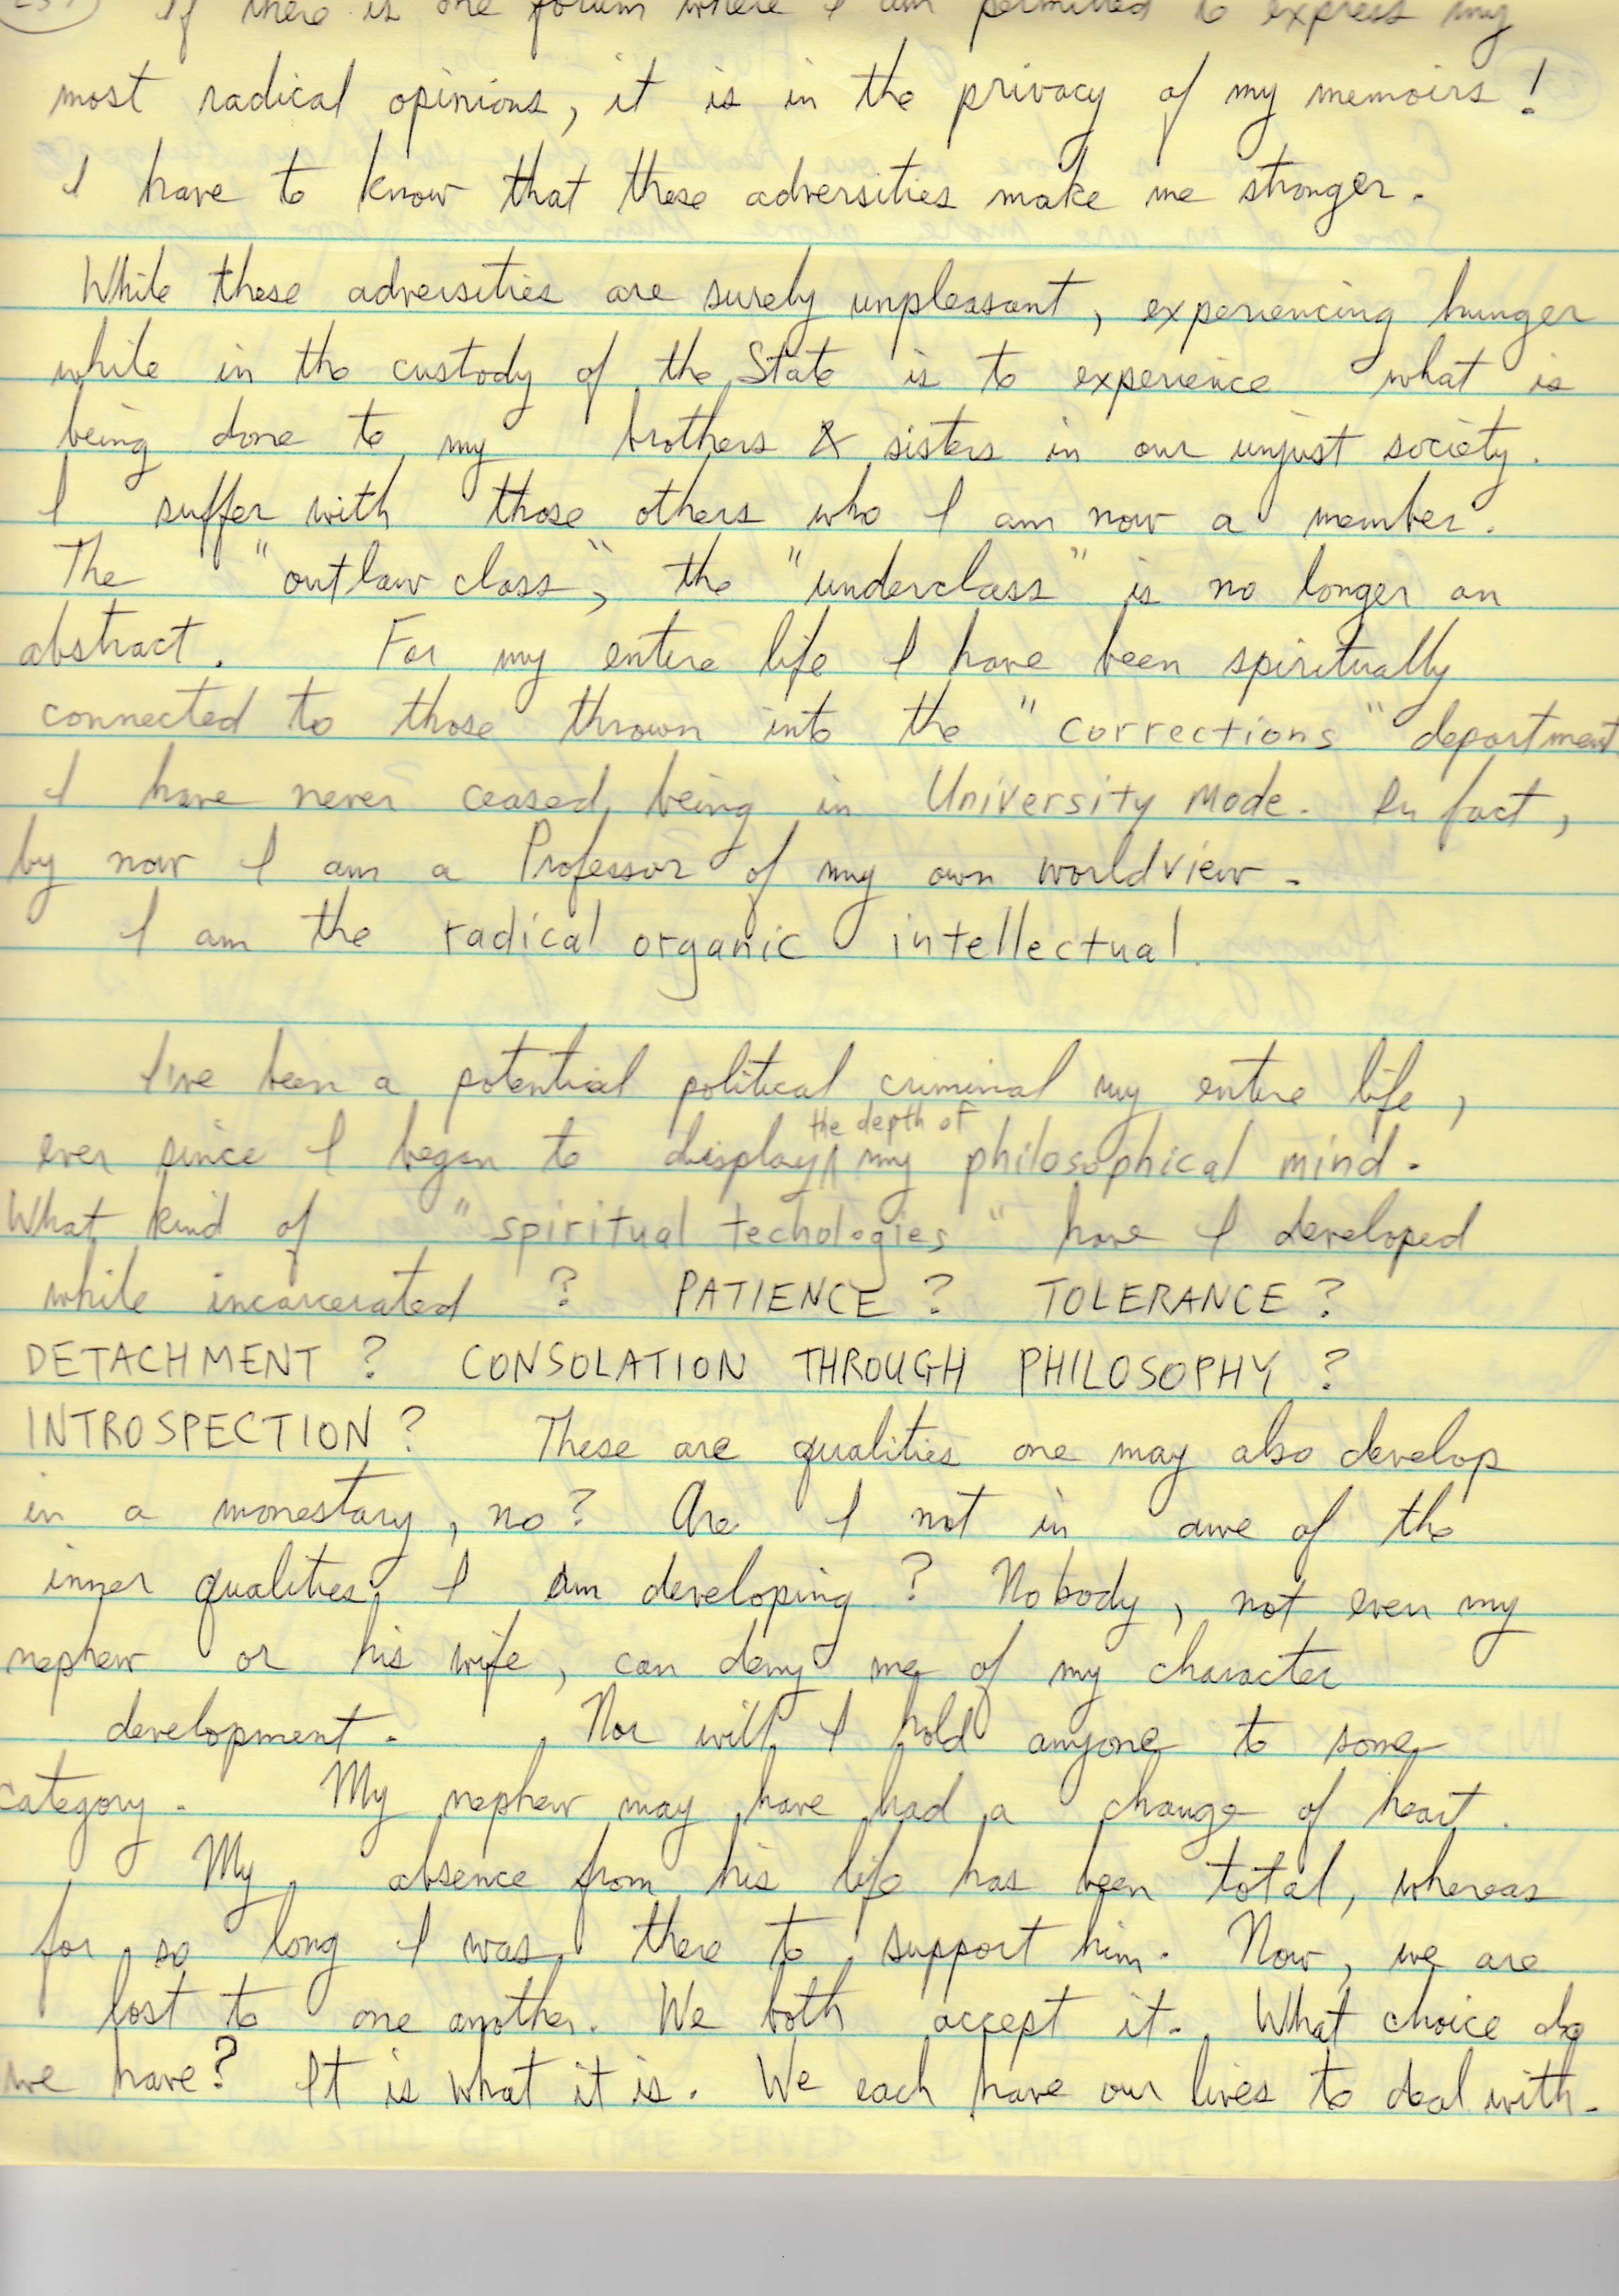 If there is one forum where I am permitted to express my
most radical opinions, it is in the privacy of my memoirs!
I have to know that these adversities make me stronger.
While these adversities are surely unpleasant, experiencing hunger
while in the custody of the State is to experience what is
being done to my brothers & sisters in our unjust society.
I suffer with those others who I am now a member.
The "outlaw class", the "underclass" is no longer an
abstract. For my entire life I have been spiritually
connected to those thrown into the "corrections" department
I have never ceased being in University Mode. In fact,
by now I am a Professor of my own worldview.
I am the radical organic intellectual.
I've been a potential political criminal my entire life,
ever since I began to display the depth of my philosophical mind.
What kind of "spiritual techologies" have I developed
while incarcerated? PATIENCE? TOLERANCE?
DETACHMENT? CONSOLATION THROUGH PHILOSOPHY?
INTROSPECTION? These are qualities one may also develop
in a monestary, no? Are I not in awe of the
inner qualities I am developing? Nobody, not even my
nephew or his wife, can deny me of my character
development. Nor will I hold anyone to some
category. My nephew may have had a change of heart.
My absence from his life has been total, whereas
for so long I was there to support him. Now, we are
lost to one another. We both accept it. What choice do
we have? It is what it is. We each have our lives to deal with.